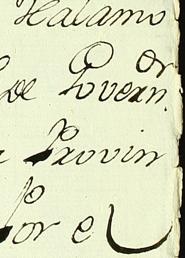 Halamo
de Govern.or
a Provin
Por el